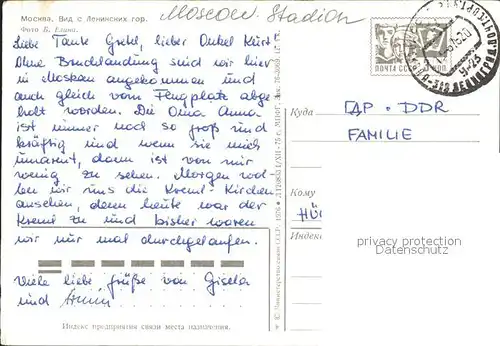 Москва. Вид с Ленинских гор.
Moscow. Stadion
Фото Б. Елина.
Liebe Tante Gretel, lieber Onkel Kurt
Ohne Bruchlandung sind wir hier
in Moskau angekommen und
auch gleich vom Flugplatz abge
holt worden. Die Oma Anna
ist immer noch so groß und
kräftig und wenn sie mich
umarmt, dann ist von mir
wenig zu sehen. Morgen wol-
len wir uns die Kreml-Kirchen
ansehen, denn heute war der
Kreml zu und bisher waren
wir nur mal durchgelaufen.
Viele liebe Grüße von Gisela
und Armin
Индекс предприятия связи места назначения.
© Министерство связи СССР. 1976
ПОЧТА СССР
Куда
ГДР · DDR
FAMILIE
Кому
HÜ
Индекс
privacy protection
Datenschutz